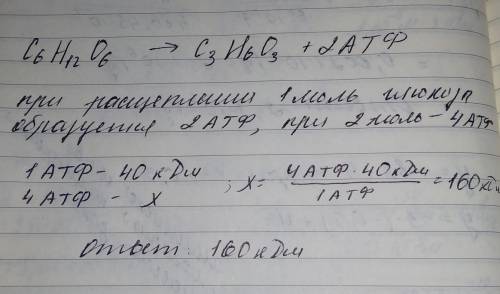 C₆H₁₂O₆ → C₃H₆O₃ + 2АТФ
при расщеплении 1 моль глюкозы
образуется 2АТФ, при 2 моль – 4АТФ
1АТФ – 40 кДж
4АТФ – x ; x = 4АТФ · 40кДж / 1АТФ = 160кДж
ответ: 160 кДж